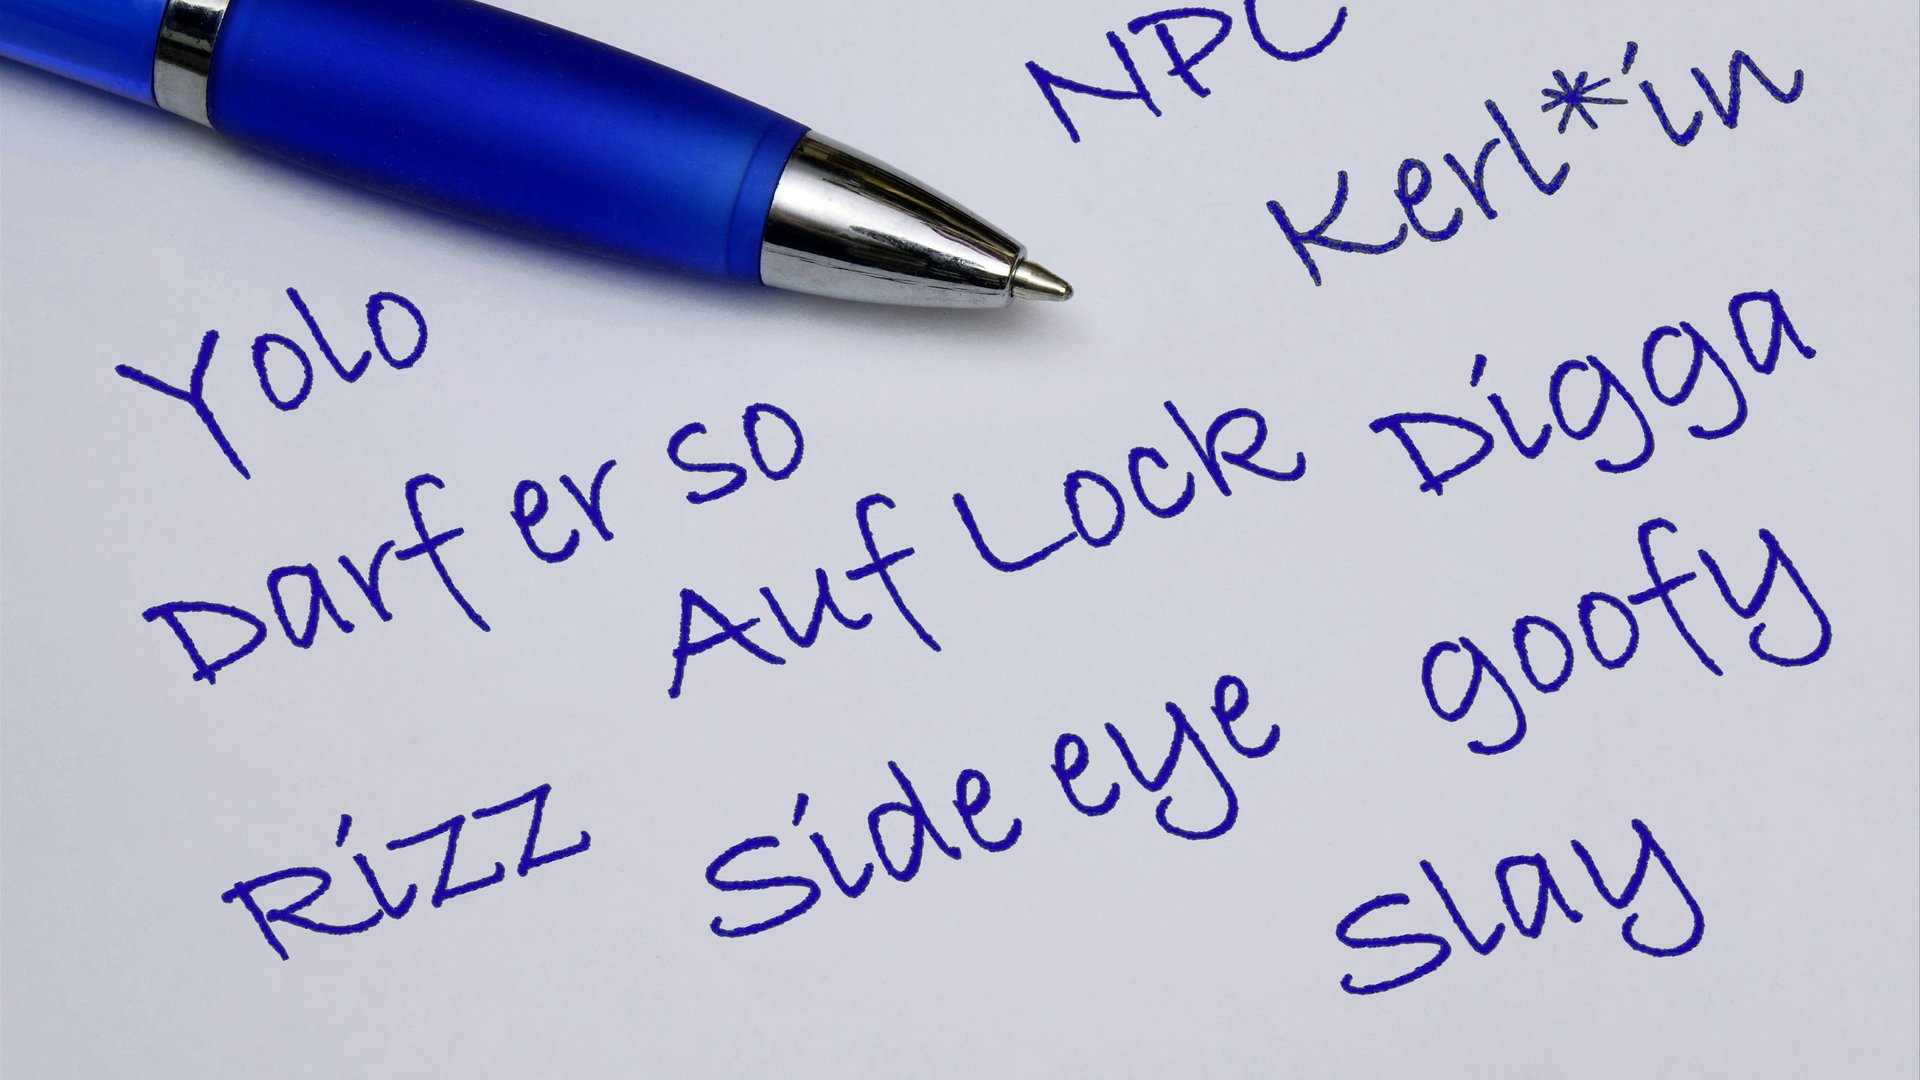 NPC
Kerl*in
Yolo
Digga
Darf er so
Auf Lock
goofy
Side eye
Rizz
Slay